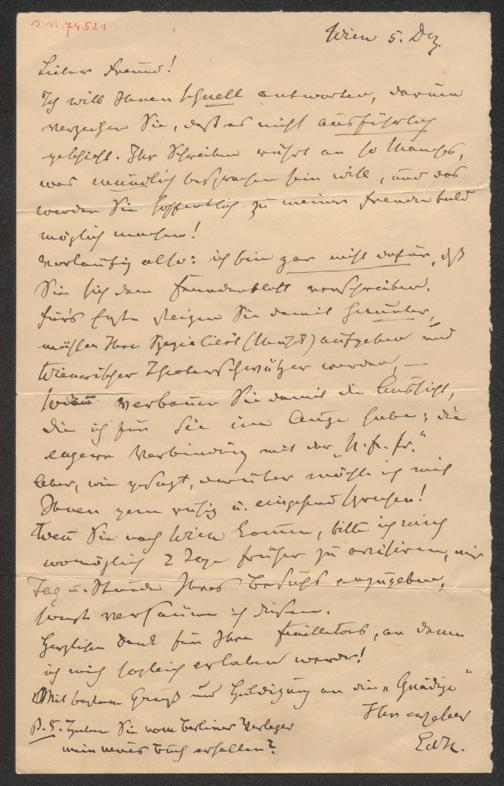 I.N. 74521
Wien 5. Dez.
Lieber Freund!
Ich will Ihnen schnell antworten, darum
verzeihen Sie, daß es nicht ausführlich
geschieht. Ihr Schreiben rührt an so Manches,
was mündlich besprochen sein will, und das
werden Sie hoffentlich zu meiner Freude bald
möglich machen!
Vorläufig also: ich bin gar nicht dafür, daß
Sie sich dem Fremdenblatt verschreiben.
Fürs Erste steigen Sie damit herunter,
müßten Ihre Spezialität (Musik) aufgeben und
Wienerischer Theaterschwätzer werden, —
verbauen Sie damit die Aussicht,
die ich für Sie im Auge habe: die
engere Verbindung mit der „N. fr. Pr."
Aber, wie gesagt, darüber möchte ich mich
Ihnen gern ruhig u. eingehend sprechen!
Wenn Sie nach Wien kommen, bitte ich mich
womöglich 2 Tage früher zu avisiren, mir
Tag u. Stunde Ihres Besuchs anzugeben,
sonst versäume ich diesen.
Herzlichen Dank für Ihre Feuilletons, an denen
ich mich sogleich erlaben werde!
Mit bestem Gruß und Huldigung an die „Gnädige"
Ihr ergebener
P.S. Haben Sie vom Berliner Verleger
mein neues Buch erhalten?
EdH.